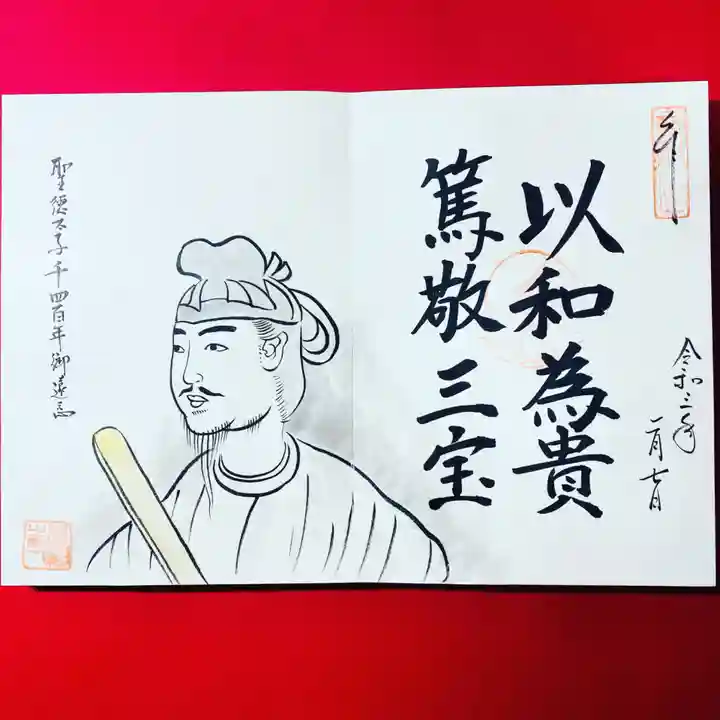 以和為貴
篤敬三宝
令和三年
一月七日
聖徳太子千四百年御遠忌